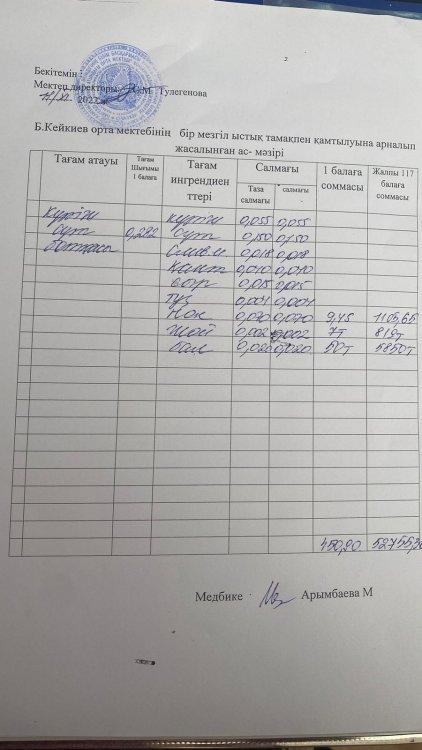 Бекітемін :
Мектеп директоры: С.М Тулегенова
2022 ж
Б.Кейкиев орта мектебінің бір мезгіл ыстық тамақпен қамтылуына арналып
жасалынған ас- мәзірі
Тағам атауы Тағам Шығымы 1 балаға Тағам ингрендиенттері Салмағы 1 балаға соммасы Жалпы 117 балаға соммасы
Таза салмағы салмағы
күріш күріш 0,055 0,055
сүт 0,292 сүт 0,150 0,150
ботқасы Слив.м. 0,018 0,018
қант 0,010 0,010
0,015 0,015
тұз 0,004 0,004
Нан 0,020 0,020 9,45 1105,65
шай 0,002 0,002 7т 819т
бал 0,020 0,020 50т 5850т
450,90 52755,30
Медбике Арымбаева М